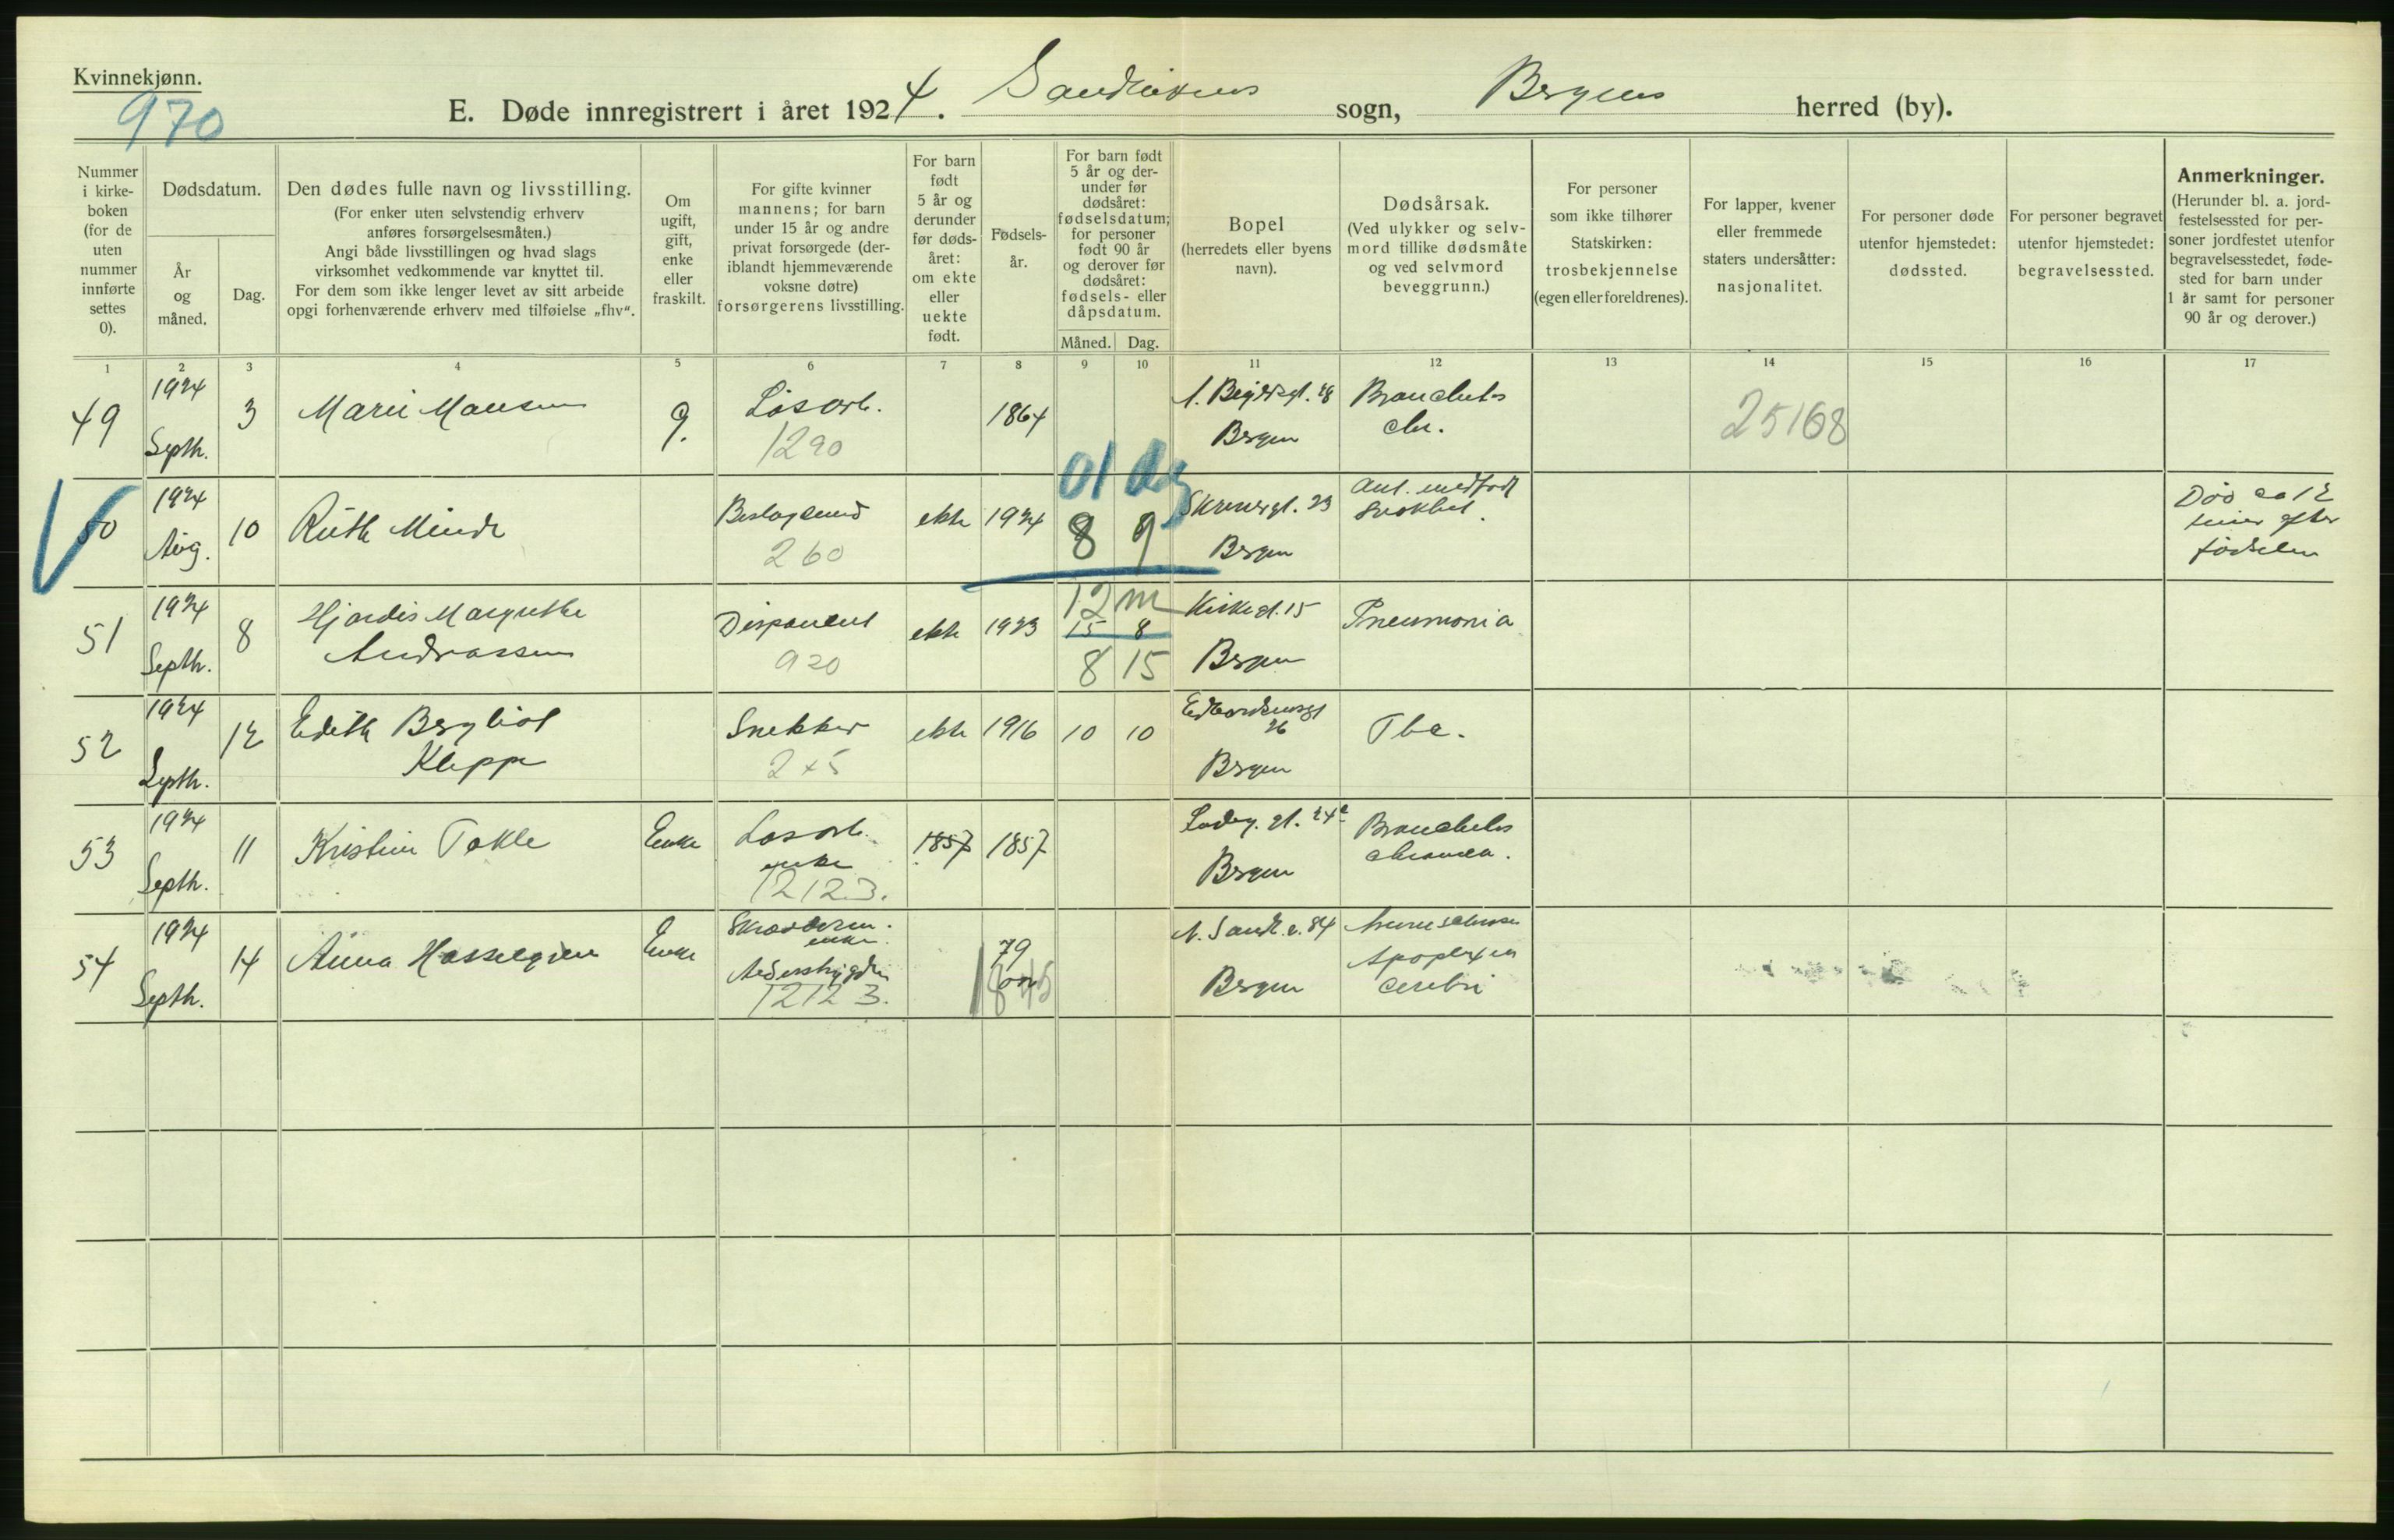 Kvinnekjønn.
970
E. Døde innregistrert i året 1924. Sandvikens sogn, Bergens herred (by).
Nummer i kirke-boken (for de uten nummer innførte settes 0).
Dødsdatum.
År og måned.
Dag.
Den dødes fulle navn og livsstilling.
(For enker uten selvstendig erhverv
anføres forsørgelsesmåten.)
Angi både livsstillingen og hvad slags
virksomhet vedkommende var knyttet til.
For dem som ikke lenger levet av sitt arbeide
opgi forhenværende erhverv med tilføielse „fhv“.
Om ugift, gift, enke eller fraskilt.
For gifte kvinner
mannens; for barn
under 15 år og andre
privat forsørgede (der-
iblandt hjemmeværende
voksne døtre)
forsørgerens livsstilling.
For barn født 5 år og derunder før døds-året: om ekte eller uekte født.
Fødsels-år.
For barn født
5 år og der-
under før
dødsåret:
fødselsdatum;
for personer
født 90 år
og derover før
dødsåret:
fødsels- eller
dåpsdatum.
Måned. Dag.
Bopel
(herredets eller byens
navn).
Dødsårsak.
(Ved ulykker og selv-
mord tillike dødsmåte
og ved selvmord
beveggrunn.)
For personer
som ikke tilhører
Statskirken:
trosbekjennelse
(egen eller foreldrenes).
For lapper, kvener
eller fremmede
staters undersåtter:
nasjonalitet.
For personer døde
utenfor hjemstedet:
dødssted.
For personer begravet
utenfor hjemstedet:
begravelsessted.
Anmerkninger.
(Herunder bl. a. jord-
festelsessted for per-
soner jordfestet utenfor
begravelsesstedet, føde-
sted for barn under
1 år samt for personer
90 år og derover.)
1 2 3 4 5 6 7 8 9 10 11 12 13 14 15 16 17
49 1924 Septh. 3 g. Løsarb. 1290 1864 Bergen 25168
50 1924 Aug. 10 Ruth Minde 260 ekte 1924 8 9 Bergen
Død ca 12
timer efter
fødselen
51 1924 Septh. 8 Hjørdis Margrethe
Andreassen
Disponent 920 ekte 1923 12 m 15 8
8 15
Kirkegt. 15
Bergen
Pneumonia
52 1924 Septh. 12 Edith Bergliot
Kleppe
Snekker 245 ekte 1916 10 10
26
Bergen
Tbc.
53 1924 Septh. 11 Kristine Takle Enke Løsarb.
enke
12123.
1857 1857
Bergen
54 1924 Septh. 14 Anna Enke
enke
12123.
79
1845
N. Sandv. v. 84
Bergen
Apoplexia
cerebri